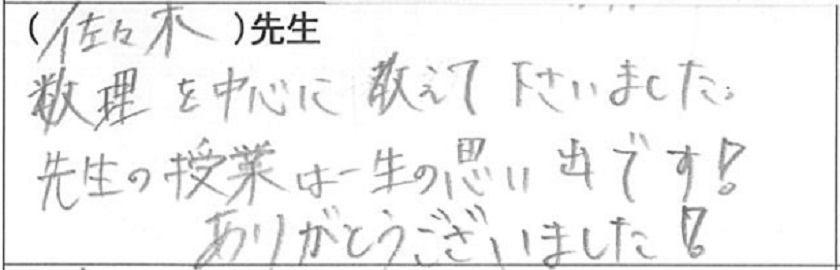 (佐々木)先生
数理を中心に教えて下さいました。
先生の授業は一生の思い出です!
ありがとうございました!